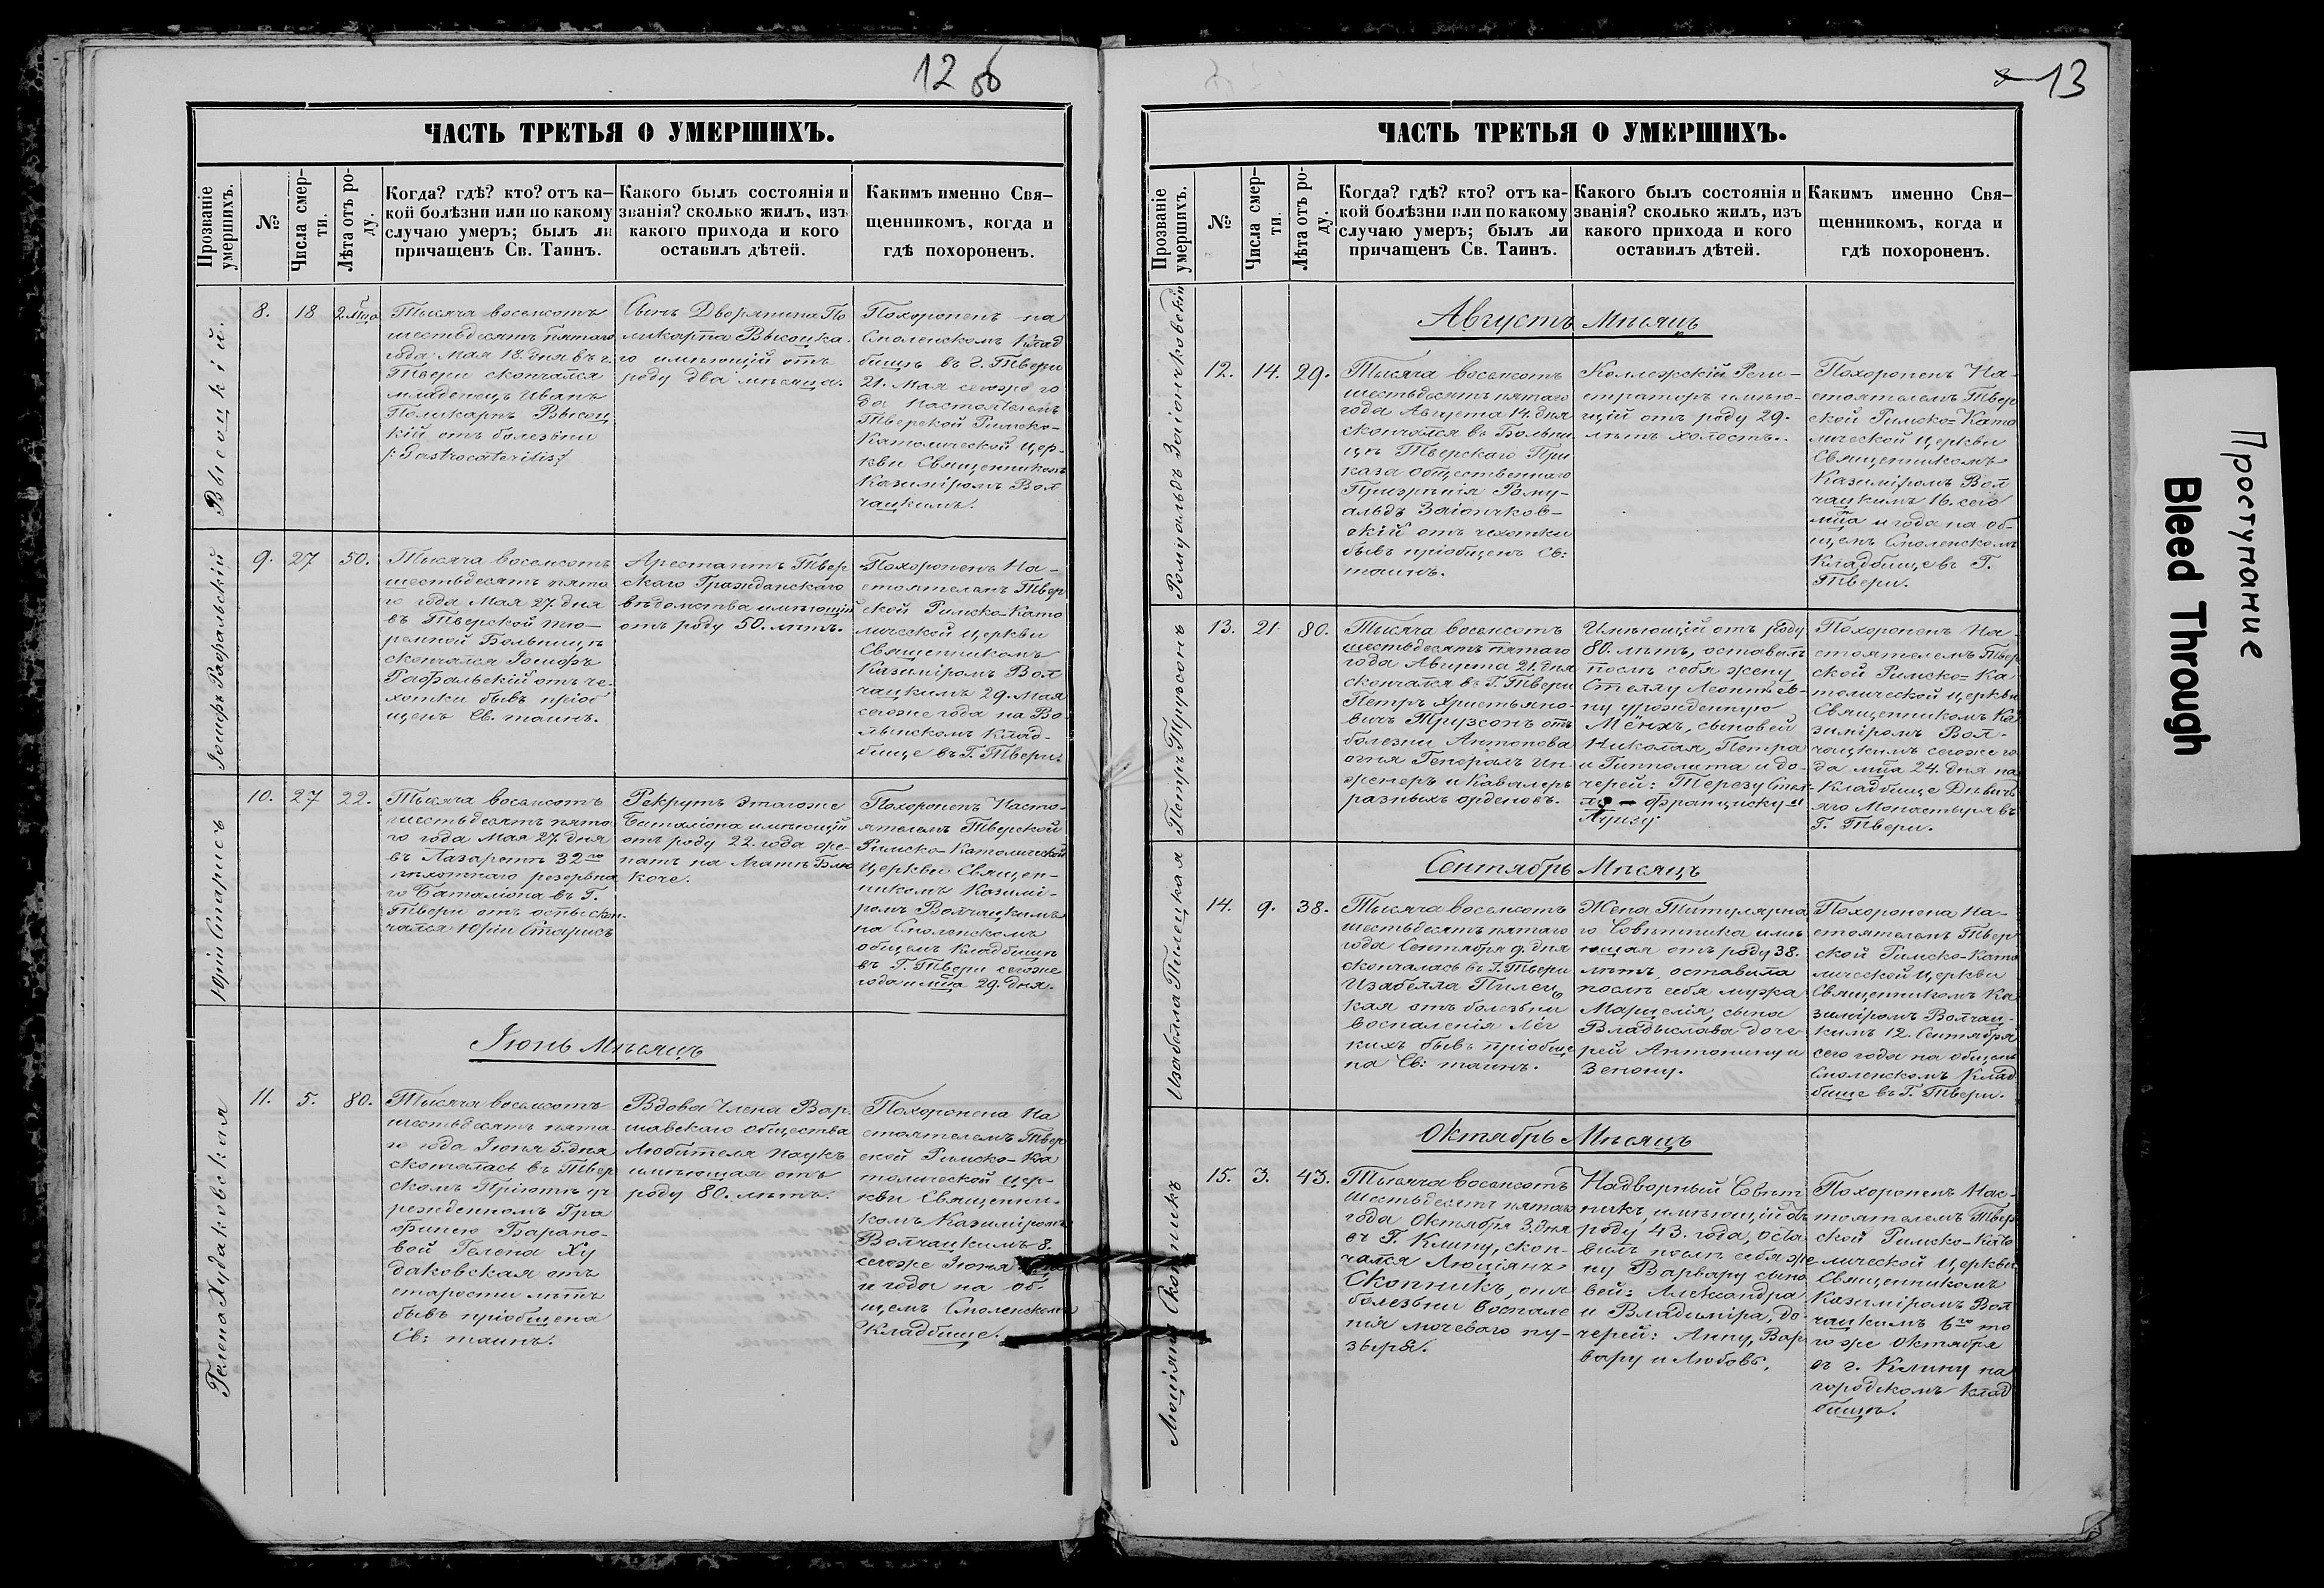 12 об
ЧАСТЬ ТРЕТЬЯ О УМЕРШИХЪ.
Прозваніе умершихъ.
№
Числа смерти.
Лѣта отъ роду.
Когда? гдѣ? кто? отъ ка-
кой болѣзни или по какому
случаю умеръ; былъ ли
причащенъ Св. Таинъ.
Какого былъ состоянія и
званія? сколько жилъ, изъ
какого прихода и кого
оставилъ дѣтей.
Какимъ именно Свя-
щенникомъ, когда и
гдѣ похороненъ.
Высоцкій.
8.
18
2. мца
Тысяча восемсотъ
шестьдесятъ пятаго
года Мая 18. дня въ г.
Твери скончался
младенецъ Иванъ
Поликарпъ Высоц
кій отъ болезни
Сынъ Дворянина По
ликарпа Высоцка-
го имѣющій отъ
роду два мѣсяца.
Похороненъ на
Смоленскомъ Клад
бищѣ въ г. Твери
21. Мая сегоже го
да Настоятелемъ
Тверской Римско-
Католической Цер-
кви Священникомъ
Казиміромъ Вол
чацкимъ.
Іосифъ Рафальскій
9.
27
50.
Тысяча восемсотъ
шестьдесятъ пята
го года Мая 27. дня
въ Тверской тю-
ремной Больницѣ
скончался Іосифъ
Рафальскій отъ ча-
хотки бывъ пріоб
щенъ Св. таинъ.
Арестантъ Твер
скаго Гражданскаго
вѣдомства имѣющій
отъ роду 50. лѣтъ.
Похороненъ На-
стоятелемъ Твер
ской Римско-Като
лической Церкви
Священникомъ
Казиміромъ Вол
чацкимъ 29. Мая
сегоже года на Во-
лынскомъ Клад-
бище въ Г. Твери.
Юрій Старисъ
10.
27
22.
Тысяча восемсотъ
шестьдесятъ пята
го года Мая 27. дня
въ Лазаретѣ 32го
пѣхотнаго резервна
го Баталіона въ Г.
Твери отъ оспы скон-
чался Юрій Старисъ
Рекрутъ этагоже
Баталіона имѣющій
отъ роду 22. года же-
натъ на
Похороненъ Насто-
ятелемъ Тверской
Римско-Католической
Церкви Священ-
никомъ Казимі-
ромъ Волчацкимъ
на Смоленскомъ
общемъ Кладбищѣ
въ Г. Твери сегоже
года и мца 29. дня.
Іюнь Мѣсяцъ
Гелена Худаковская
11.
5.
80.
Тысяча восемсотъ
шестьдесятъ пята-
го года Іюня 5. дня
скончалась въ Твер
скомъ Пріютѣ уч
режденномъ Гра
финею Барано-
вой Гелена Ху
даковская отъ
старости лѣтъ
бывъ пріобщена
Св: таинъ.
Вдова Члена Вар-
шавскаго общества
Любителя Наукъ
имѣющая отъ
роду 80. лѣтъ.
Похоронена На
стоятелемъ Твер
ской Римско-Ка
толической Цер-
кви Священни-
комъ Казиміромъ
Волчацкимъ 8.
сегоже Іюня
и года на об-
щемъ Смоленскомъ
Кладбище.
13
ЧАСТЬ ТРЕТЬЯ О УМЕРШИХЪ.
Прозваніе умершихъ.
№
Числа смерти.
Лѣта отъ роду.
Когда? гдѣ? кто? отъ ка-
кой болѣзни или по какому
случаю умеръ; былъ ли
причащенъ Св. Таинъ.
Какого былъ состоянія и
званія? сколько жилъ, изъ
какого прихода и кого
оставилъ дѣтей.
Какимъ именно Свя-
щенникомъ, когда и
гдѣ похороненъ.
Августъ Мѣсяцъ
Ромуальдъ Заіончковскій
12.
14.
29.
Тысяча восемсотъ
шестьдесятъ пятаго
года Августа 14. дня
скончался въ Больни
цѣ Тверскаго При
каза общественнаго
Призрѣнія Рому-
альдъ Заіончков-
скій отъ чахотки
бывъ пріобщенъ Св:
таинъ.
Коллежскій Реги-
страторъ имѣю-
щій отъ роду 29.
лѣтъ холостъ.
Похороненъ На-
стоятелемъ Твер
ской Римско-Като
лической Церкви
Священникомъ
Казиміромъ Вол
чацкимъ 16. сего
мца и года на об-
щемъ Смоленскомъ
Кладбище въ Г.
Твери.
Петръ Трузсонъ
13.
21
80.
Тысяча восемсотъ
шестьдесятъ пятаго
года Августа 21. дня
скончался въ Г. Твери
Петръ Христьяно-
вичъ Трузсонъ отъ
болезни Антонова
огня Генералъ Ин-
женеръ и Кавалеръ
разныхъ орденовъ.
Имѣющій отъ роду
80. лѣтъ, оставилъ
послѣ себя жену
Стеллу Леонтьев-
ну урожденную
Мёнхъ, сыновей
Николая, Петра
и Ипполита и до-
черей: Терезу
Франциску и
Луизу
Похороненъ На-
стоятелемъ Твер
ской Римско-Ка
толической Церкви
Священникомъ Ка
зиміромъ Вол-
чацкимъ сегоже го
да мца 24. дня на
Кладбище Дѣвичь
яго Монастыря въ
Г. Твери.
Сентябрь Мѣсяцъ
Изабелла Пилецкая
14.
9.
38.
Тысяча восемсотъ
шестьдесятъ пятаго
года Сентября 9. дня
скончалась въ Г. Твери
Изабелла Пилец
кая отъ болезни
воспаленія Лег
кихъ бывъ пріобще
на Св: таинъ.
Жена Титулярна
го Совѣтника имѣ
ющая отъ роду 38.
лѣтъ, оставила
послѣ себя мужа
Марцелія, сына
Владыслава доче-
рей Антонину и
Зенону.
Похоронена На-
стоятелемъ Твер
ской Римско-Като
лической Церкви
Священникомъ Ка
зиміромъ Волчац-
кимъ 12. Сентября
сего года на общемъ
Смоленскомъ Клад
бище въ Г. Твери.
Октябрь Мѣсяцъ
Люціянъ Скопникъ
15.
3.
43.
Тысяча восемсотъ
шестьдесятъ пятаго
года Октября 3. дня
въ Г. Клину, скон-
чался Люціянъ
Скопникъ, отъ
болезни воспале
нія мочеваго пу-
зыря.
Надворный Совѣт
никъ, имѣющій отъ
роду 43. года, оста
вилъ послѣ себя же
ну Варвару сыно
вей: Александра
и Владиміра, до-
черей: Анну, Вар
вару и Любовь,
Похороненъ Нас-
тоятелемъ Твер
ской Римско-Като
лической Церкви
Священникомъ
Казиміромъ Вол
чацкимъ 6го то
гоже Октября
въ г. Клину на
городскомъ Клад
бищѣ.
Проступание
Bleed Through